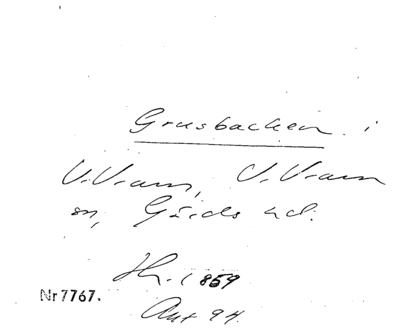 Grusbacken i
V. Vram, V. Vram
sn, Gärds hd.
Hr. 1859
Nr 7767.
Ant 94.